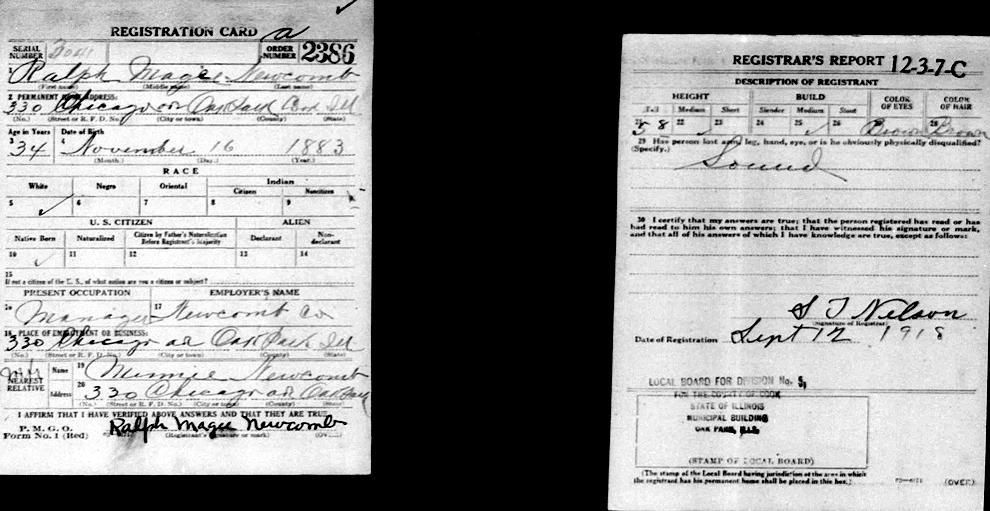 REGISTRATION CARD a
SERIAL NUMBER 3041 ORDER NUMBER 2386
1 Ralph Magee Newcomb
(First name) (Middle name) (Last name)
2 PERMANENT HOME ADDRESS:
330 Chicago av Oak Park Cook Ill
(No.) (Street or R. F. D. No.) (City or town) (County) (State)
Age in Years Date of Birth
3 34 4 November 16 1883
(Month.) (Day.) (Year.)
RACE
White Negro Oriental Indian
Citizen Noncitizen
5 ✓ 6 7 8 9
U. S. CITIZEN ALIEN
Native Born Naturalized Citizen by Father's Naturalization Before Registrant's Majority Declarant Non-declarant
10 ✓ 11 12 13 14
15
If not a citizen of the U. S., of what nation are you a citizen or subject?
PRESENT OCCUPATION EMPLOYER'S NAME
16 Manager 17 Newcomb Co
18 PLACE OF EMPLOYMENT OR BUSINESS:
330 Chicago av Oak Park Ill
(No.) (Street or R. F. D. No.) (City or town) (County) (State)
NEAREST RELATIVE
Name 19 Minnie Newcomb
Address 20 330 Chicago av Oak Park
(No.) (Street or R. F. D. No.) (City or town) (County) (State)
I AFFIRM THAT I HAVE VERIFIED ABOVE ANSWERS AND THAT THEY ARE TRUE
P. M. G. O.
Form No. 1 (Red) Ralph Magee Newcomb
(Registrant's signature or mark) (OVER)
REGISTRAR'S REPORT 12-3-7-C
DESCRIPTION OF REGISTRANT
HEIGHT BUILD COLOR OF EYES COLOR OF HAIR
Tall Medium Short Slender Medium Stout
21 5 8 22 ✓ 23 24 25 ✓ 26 27 Brown 28 Brown
29 Has person lost arm, leg, hand, eye, or is he obviously physically disqualified?
(Specify.) Sound
30 I certify that my answers are true; that the person registered has read or has
had read to him his own answers; that I have witnessed his signature or mark,
and that all of his answers of which I have knowledge are true, except as follows:
S T Nelson
(Signature of Registrar)
Date of Registration Sept 12 1918
LOCAL BOARD FOR DIVISION No. 5,
FOR THE COUNTY OF COOK
STATE OF ILLINOIS
MUNICIPAL BUILDING
OAK PARK, ILLS.
(STAMP OF LOCAL BOARD)
(The stamp of the Local Board having jurisdiction of the area in which
the registrant has his permanent home shall be placed in this box.)
(OVER)